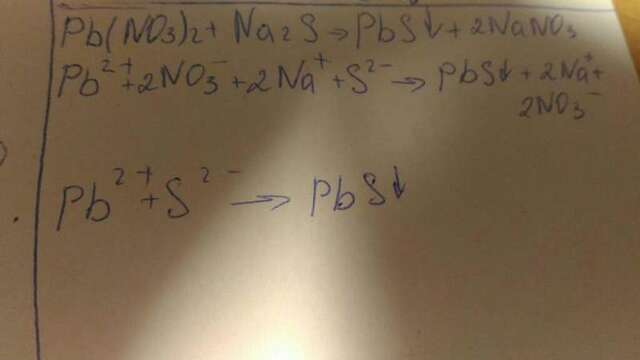 Pb(NO3)2 + Na2S → PbS↓ + 2NaNO3
Pb²⁺ + 2NO3⁻ + 2Na⁺ + S²⁻ → PbS↓ + 2Na⁺ +
2NO3⁻
Pb²⁺ + S²⁻ → PbS↓